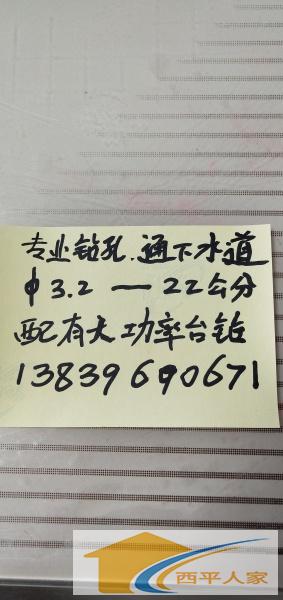 专业钻孔.通下水道
φ3.2—22公分
配有大功率台钻
13839690671
西平人家